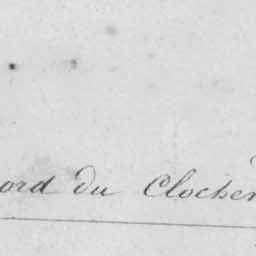 ord du Clocher